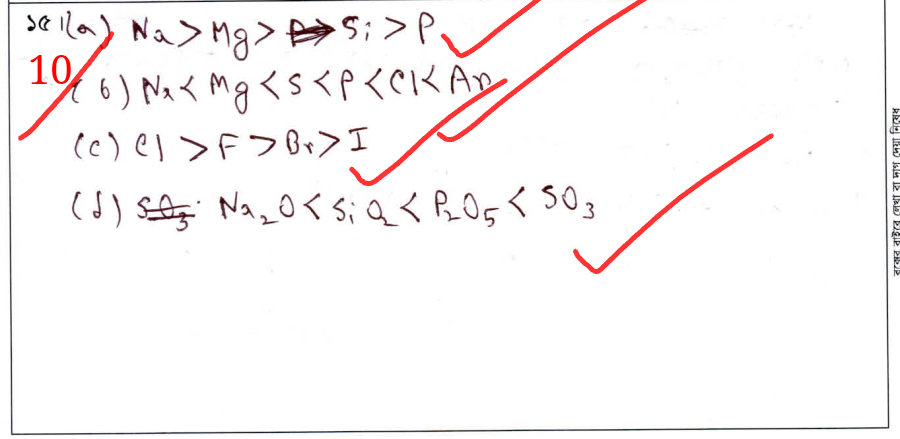 ১৫।(a) Na > Mg > Si > P
10
(b) Na < Mg < S < P < Cl < Ar
(c) Cl > F > Br > I
(d) Na₂O < SiO₂ < P₂O₅ < SO₃
বক্সের বাইরে লেখা বা দাগ দেয়া নিষেধ